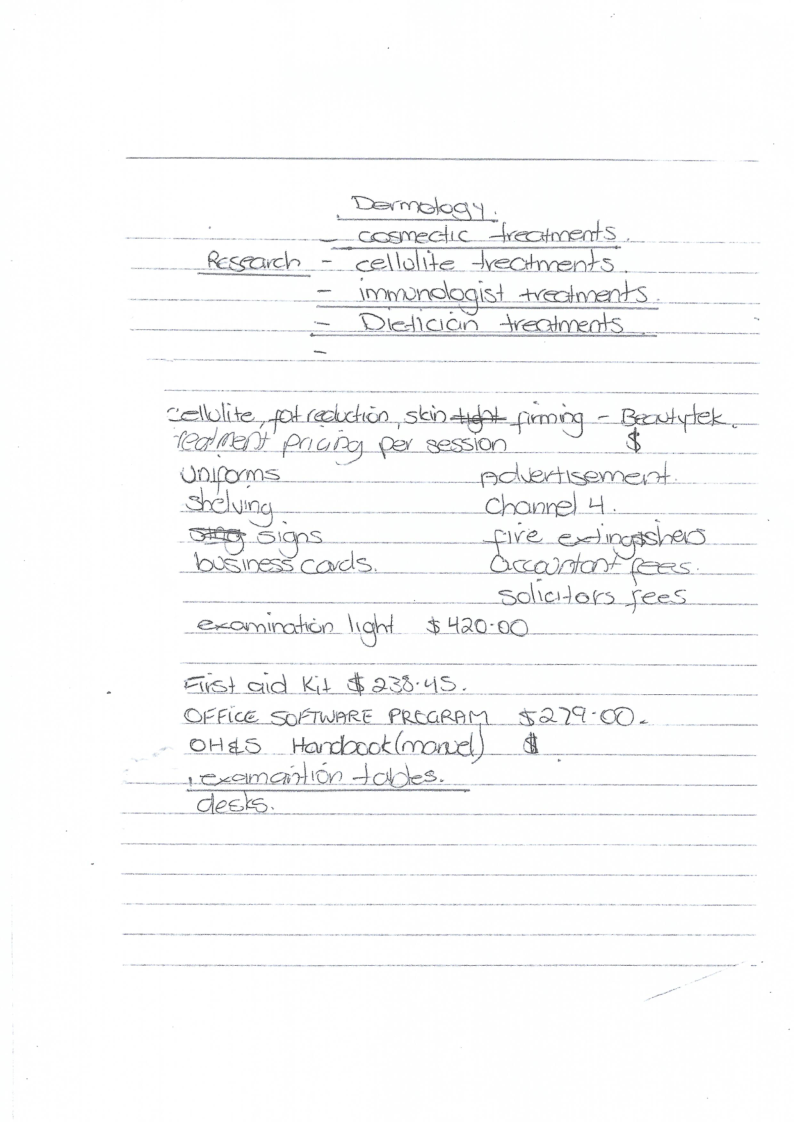 Dermology.
- cosmectic treatments.
Research - cellulite treatments.
- immunologist treatments.
- Dietician treatments
-
cellulite, fat reduction, skin tight firming - Beautytek.
treatment pricing per session $
uniforms advertisement.
shelving channel 4.
signs fire extingushers
business cards. accountant fees.
solicitors fees
examination light $420.00
First aid Kit $238.45.
OFFICE SOFTWARE PROGRAM $279.00.
OH&S Handbook (manuel) $
examaintion tables.
desks.